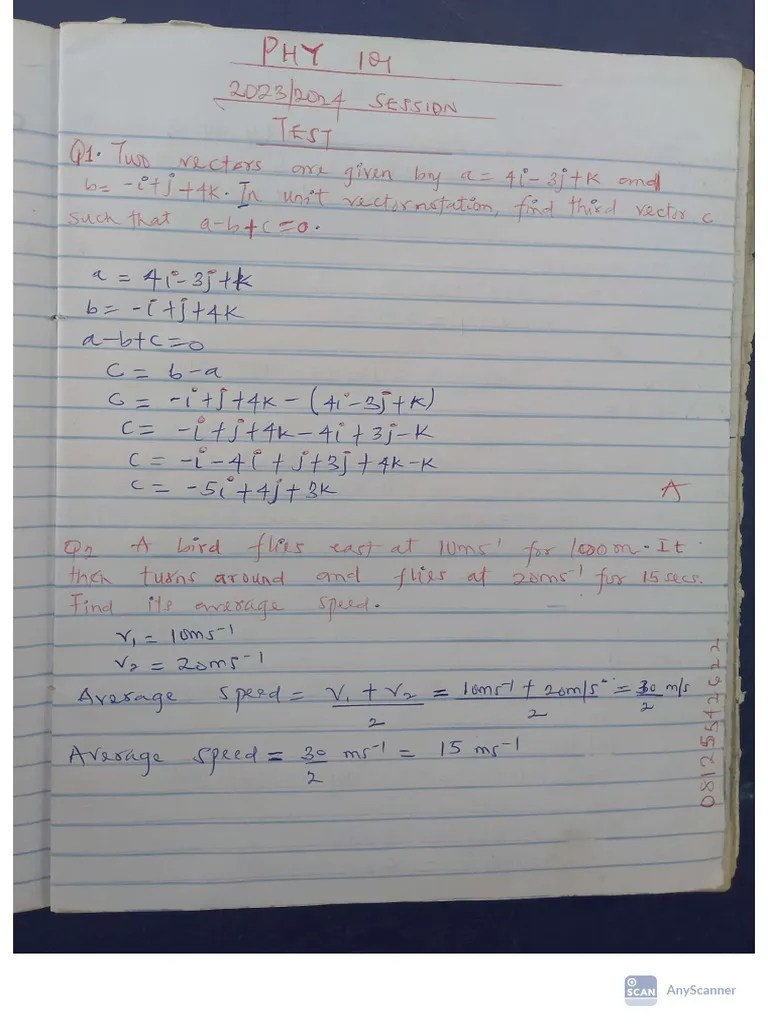 PHY 101
2023/2024 SESSION
TEST
Q1. Two vectors are given by a = 4i - 3j + k and
b = -i + j + 4k. In unit vector notation, find third vector c
such that a-b+c=0.
a = 4i - 3j + k
b = -i + j + 4k
a-b+c=0
c = b-a
c = -i + j + 4k - (4i - 3j + k)
c = -i + j + 4k - 4i + 3j - k
c = -i - 4i + j + 3j + 4k - k
c = -5i + 4j + 3k A
Q2 A bird flies east at 10ms⁻¹ for 1000m. It
then turns around and flies at 20ms⁻¹ for 15secs.
Find its average speed.
v₁ = 10ms⁻¹
v₂ = 20ms⁻¹
Average speed = v₁ + v₂ / 2 = 10ms⁻¹ + 20m/s / 2 = 30 / 2 m/s
Average speed = 30 / 2 ms⁻¹ = 15 ms⁻¹
SCAN AnyScanner